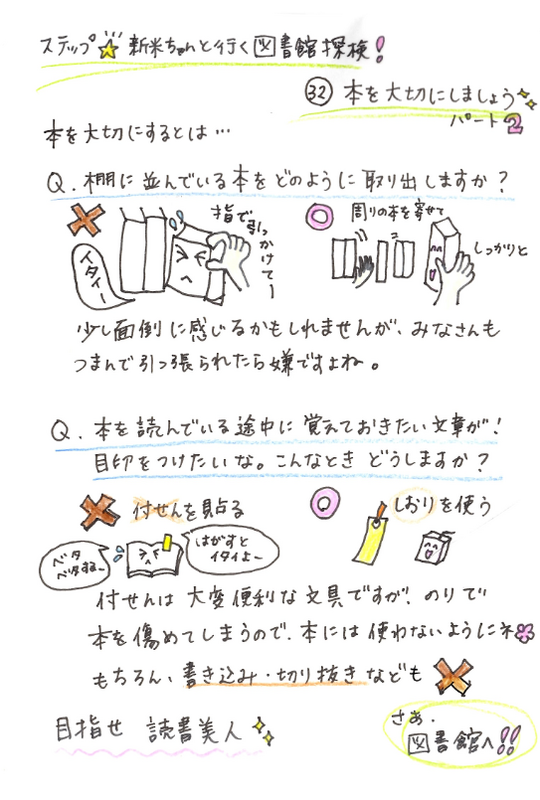 ステップ 新米ちゃんと行く 図書館探検!
㉜ 本を大切にしましょう
パート2
本を大切にするとは…
Q. 棚に並んでいる本をどのように取り出しますか?
指で
引っかけてー
イタイー
周りの本を寄せて
しっかりと
少し面倒に感じるかもしれませんが、みなさんも
つまんで引っ張られたら嫌ですよね。
Q. 本を読んでいる途中に覚えておきたい文章が!
目印をつけたいな。こんなとき どうしますか?
付せんを貼る
しおりを使う
ベタ
ベタするー
はがすと
イタイよー
付せんは 大変便利な文具ですが、のりで
本を傷めてしまうので、本には使わないようにネ
もちろん、書き込み・切り抜きなども
目指せ 読書美人
さあ、
図書館へ!!